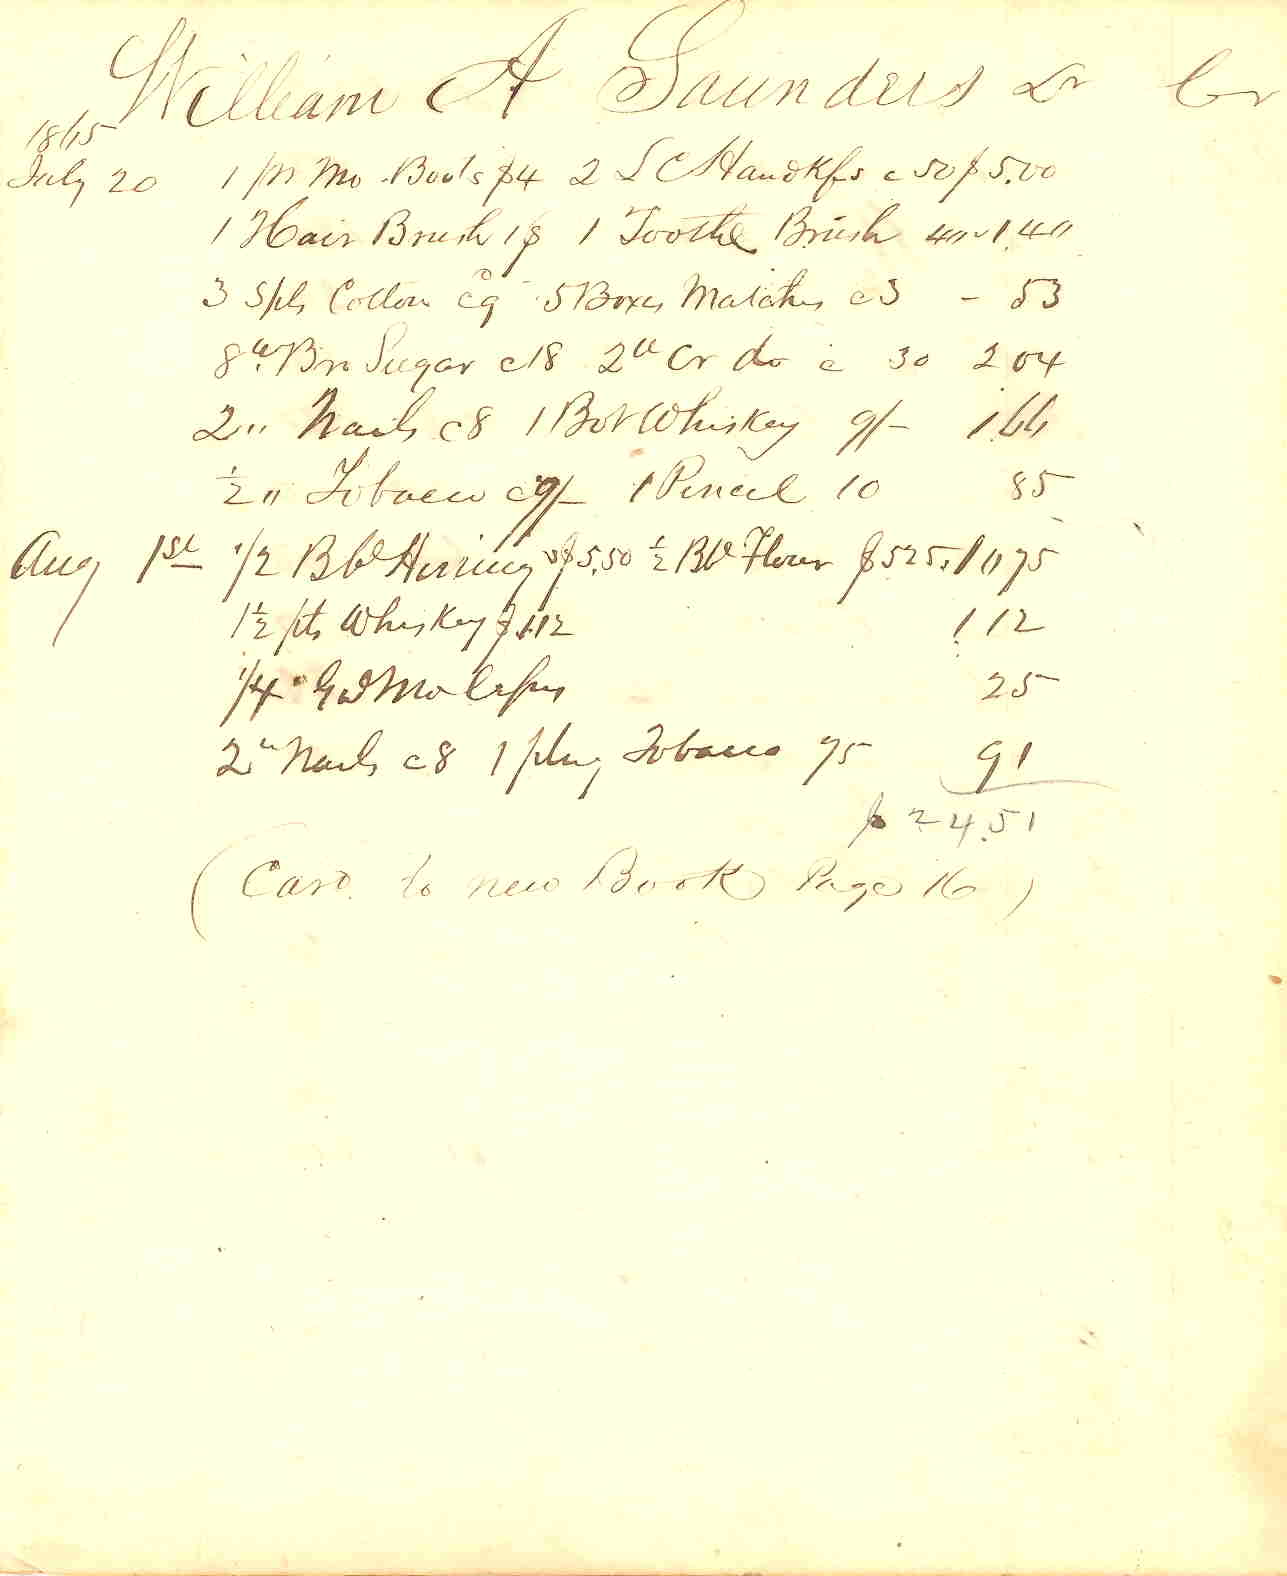 William A Saunders Dr Cr
1865
July 20 1 pr Mo Boots $4 2 L C Handkfs c 50 $5.00
1 Hair Brush 1$ 1 Toothe Brush 40 1.40
3 Spls Cotton c 9 5 Boxes Matches c 3 - 53
8 lb Brn Sugar c 18 2 lb Cr do c 30 2 04
2 " Nails c 8 1 Bot Whiskey 9/- 1 66
½ " Tobacco c 9/- 1 Pencil 10 85
Aug 1st 1/2 Bbl Herring $5.50 ½ Bbl Flour $5 25. 10 75
1½ pts Whiskey $ 1.12 1 12
1/4 Gal Molasses 25
2 " Nails c 8 1 plug Tobacco 75 91
$ 24.51
(Card. to new Book Page 16)